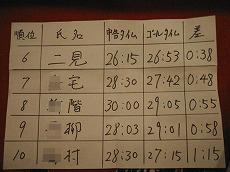 順位 氏名 申告タイム ゴールタイム 差
6 二見 26:15 26:53 0:38
7 宅 28:30 27:42 0:48
8 階 30:00 29:05 0:55
9 柳 28:03 29:01 0:58
10 村 28:30 27:15 1:15